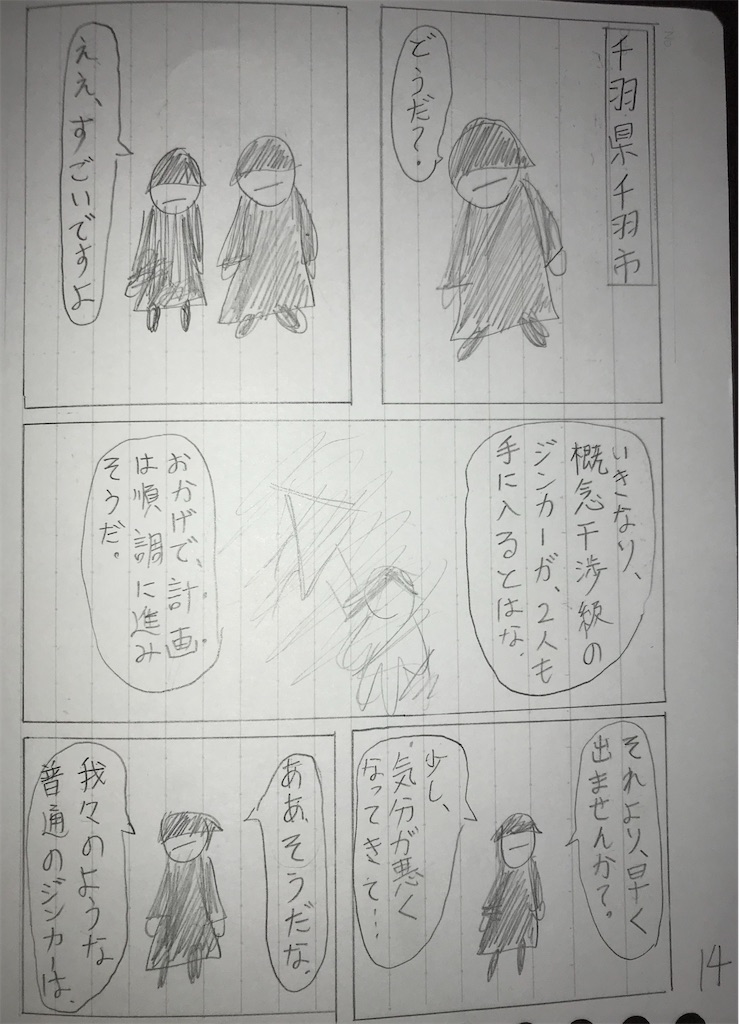 千羽県千羽市
どうだ?。
ええ、すごいですよ
いきなり、
概念干渉級の
ジンカーが、2人も
手に入るとはな。
おかげで、計画
は順調に進み
そうだ。
それより、早く
出ませんか?。
少し、
気分が悪く
なってきて…
ああ、そうだな。
我々のような
普通のジンカーは、
14